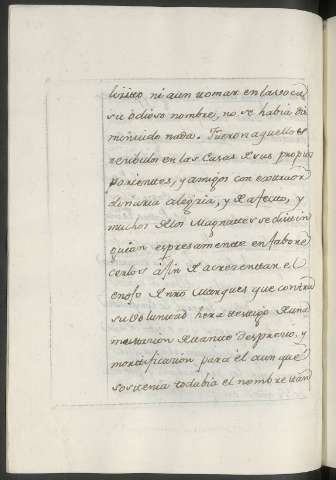 lixito ni aun tomar en la boca
su odioso nombre, no se habia dis
minuido nada. Fueron aquellos
recibidos en las Casas de sus propios
parientes, y amigos con extraor
dinaria alegria, y de afecto, y
muchos de los Magnattes se distin
guian espresamente en fabore
cerlos a fin de acrezentar el
enojo de nro Marques que contra
su Voluntad hera testigo de una
mutacion de tanto desprecio, y
mortificazion para el aun que
sostenia todabia el nombre tan